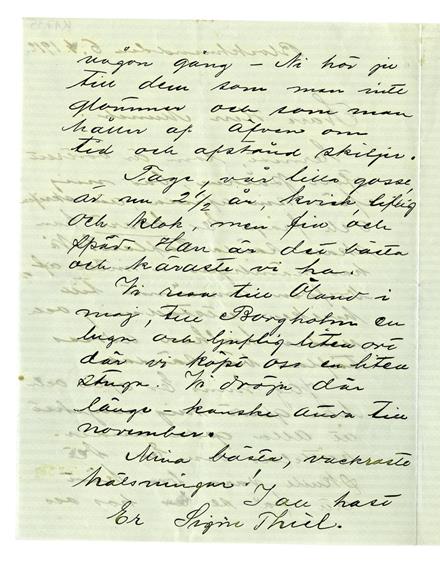 någon gång – Ni hör ju
till dem som man inte
glömmer och som man
håller af äfven om
tid och afstånd skiljer.
Tage, vår lilla gosse,
är nu 2½ år, kvick, liflig
och klok, men fin och
späd. Han är det bästa
och käraste vi ha.
Vi resa till Öland i
maj, till Borgholm en
lugn och ljuflig liten ort
där vi köpt oss en liten
stuga. Vi dröja där
länge – kanske ända till
november.
Mina bästa, vackraste
hälsningar!
I all hast
Er Signe Thiel.